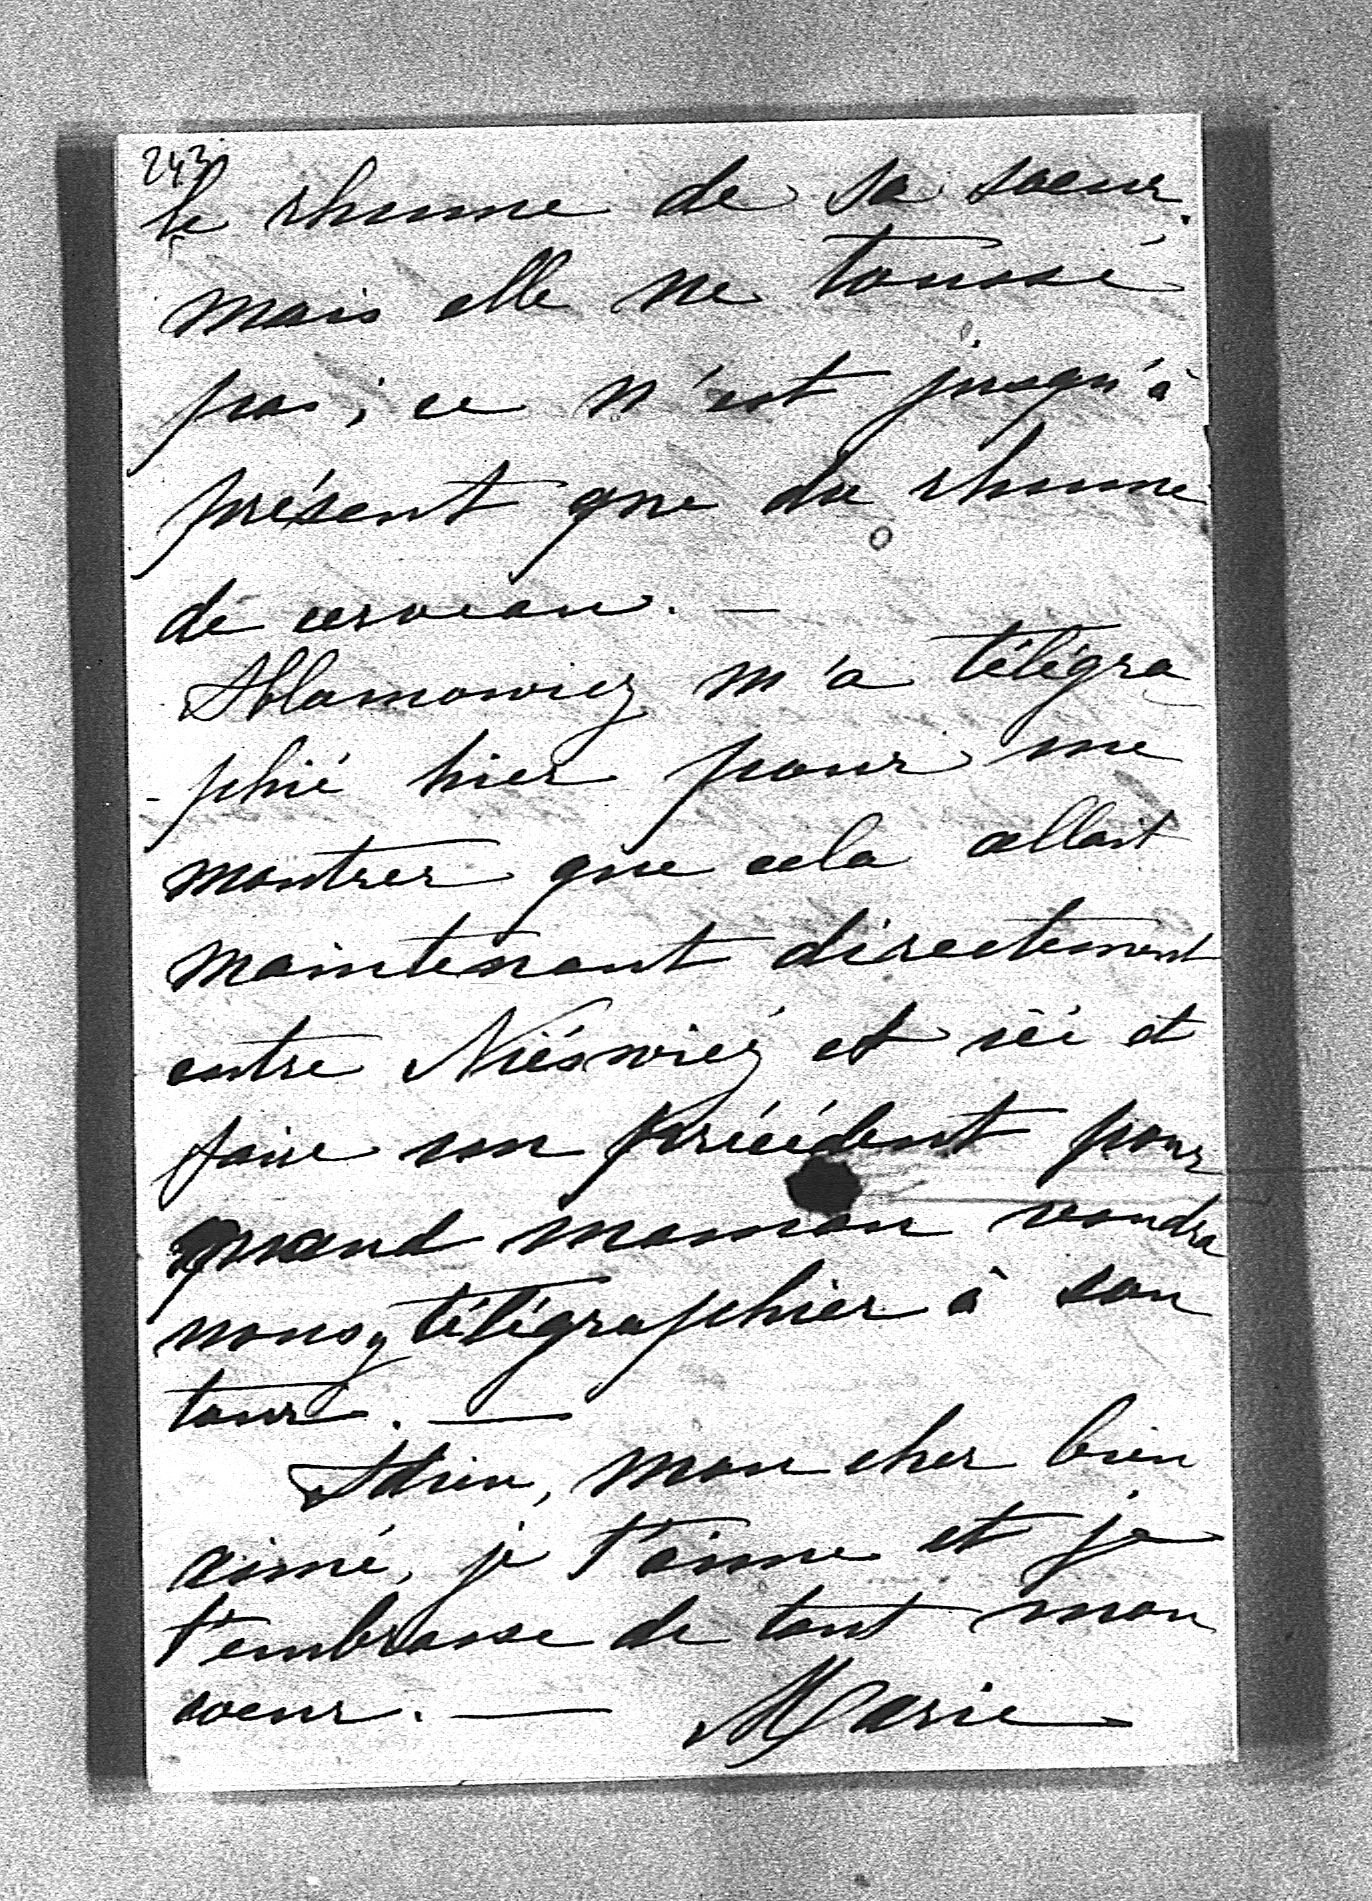 243
le rhume de sa soeur.
mais elle ne tousse
pas, ce n'est jusqu'à
présent que du rhume
de cerveau. —
Ablamowicz m'a télégra
-phié hier pour me
montrer que cela allait
maintenant directement
entre Nieśwież et ici et
faire un précédent pour
quand maman voudra
nous télégraphier à son
tour. —
Adieu, mon cher bien
aimé, je t'aime et je
t'embrasse de tout mon
coeur. — Marie